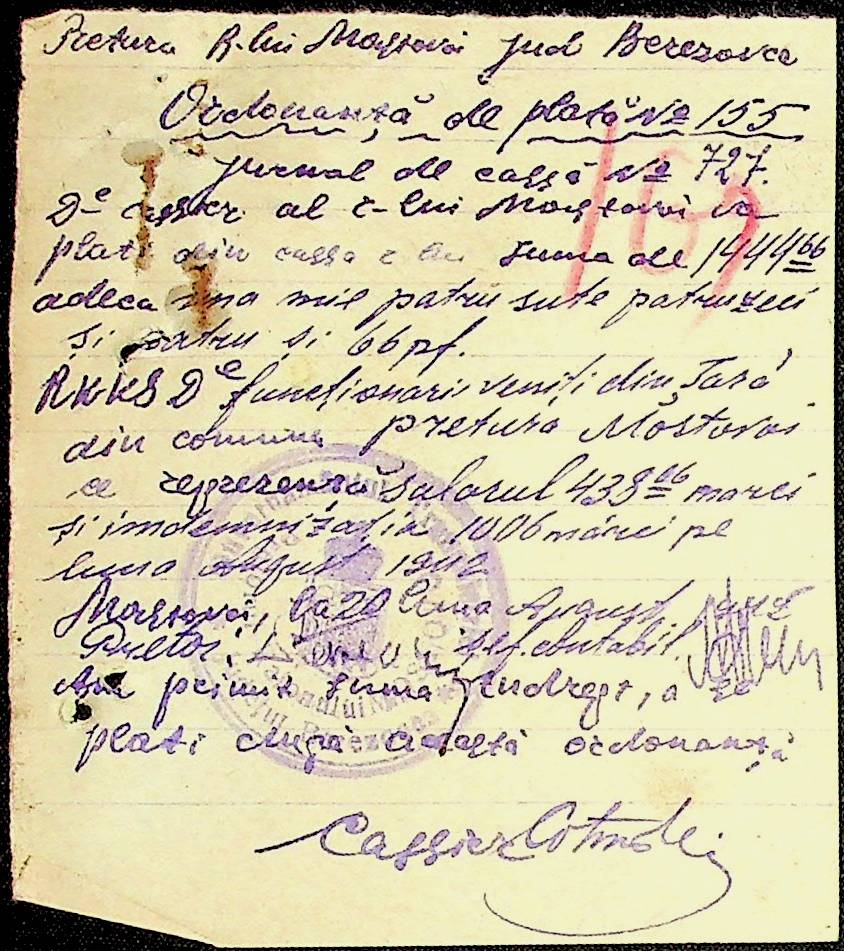 Pretura R-lui Mostovoi jud Berezovca
Ordonanță de plată № 155
jurnal de cassă № 727.
D-e cassier al r-lui Mostovoi va
plati din cassa r-lui suma de 1444 66
adeca una mie patru sute patruzeci
și patru și 66 pf.
RKKS D-e funcționarii veniți din Țară
din comuna pretura Mostovoi
ce reprezență salarul 438 66 marci
și imdemnizația 1006 mărci pe
luna August 1942
Mostovoi, la 20 luna August
Pretor, Șef. contabil.
Am primit suma
plati după această ordonanță
Cassier